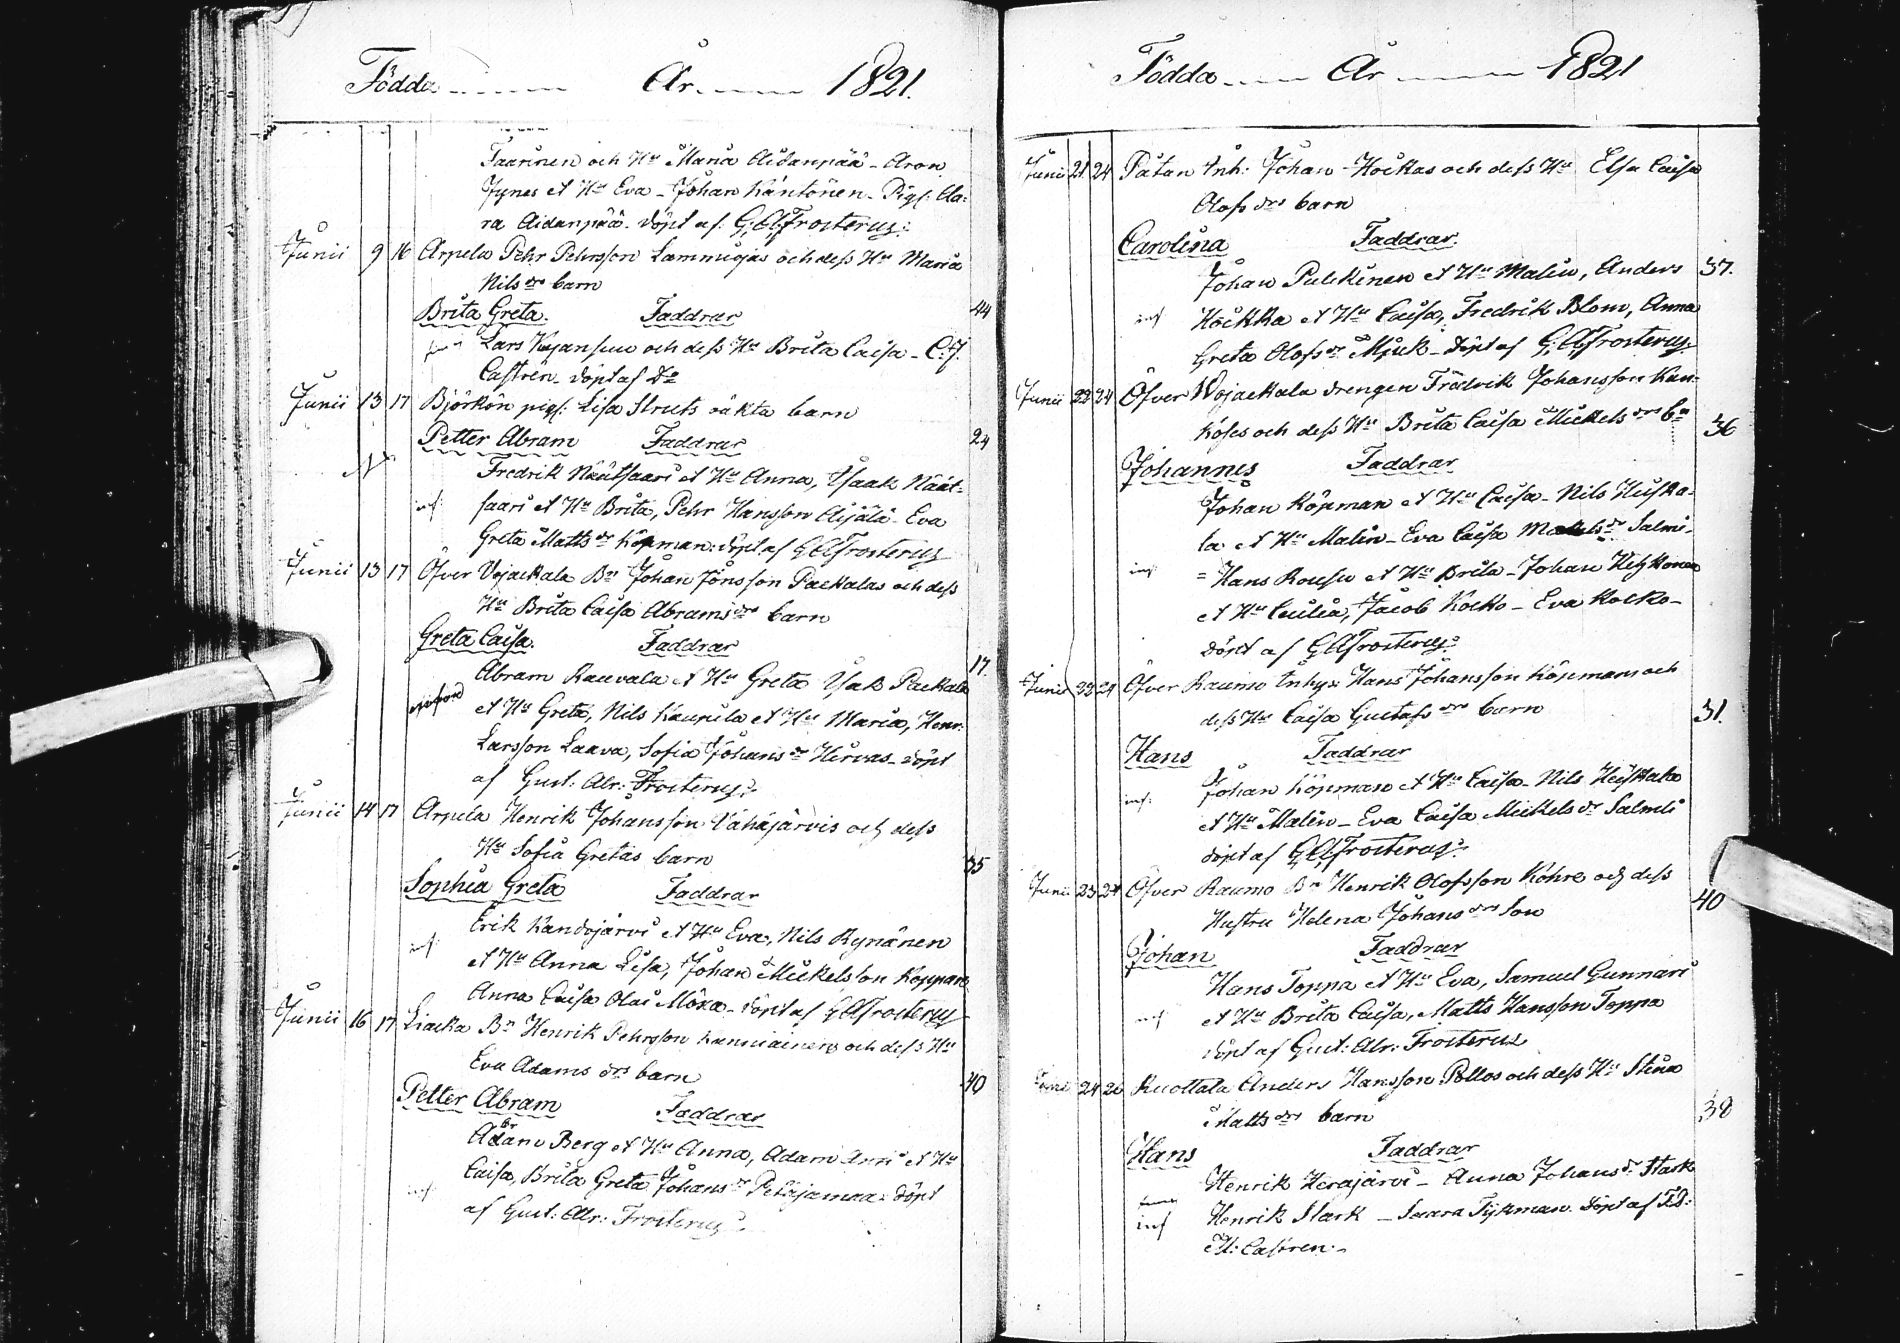 Födda År 1821.
Taarinen och Hu Maria Aidanpää - Aron
Fynes et Hu Eva - Johan Käntönen - Pig: Cla:
ra Aidanpää. döpt af: G:A:Frosterus:
Junii 9 16 Arpela Pehr Pehrsson Lammiojas och dess Hu Maria
Nils drs barn
Brita Greta. Faddrar 44
Lars Kujansuu och dess Hu Brita Caisa - C:J.
Castrén - döpt af Do
Junii 13 17 Björkön pig: Lisa Struts oäkta barn
Petter Abram Faddrar 24
N Fredrik Näätsaari et Hu Anna, Isaak Näät-
inf saari et Hu Brita, Pehr Hansson Aijälä - Eva
Greta Matts dr Köpman: döpt af GAFrosterus
Junii 13 17 Öfver Vojackala Bn Johan Jönsson Packalas och dess
Hu Brita Caisa Abrams drs barn
Greta Caisa. Faddrar 17.
Abram Rauvala et Hu Greta Isak Packala
et Hu Greta, Nils Kaupila et Hu Maria, Henr:
Larsson Laava, Sofia Johans dr Hirvas - döpt
af Gust: Alr: Frosterus:
Junii 14 17 Arpela Henrik Johansson Vähäjärvis och dess
Hu Sofia Gretas barn 35
Sophia Greta Faddrar
Erik Kandojärvi et Hu Eva, Nils Rynänen
inf et Hu Anna Lisa, Johan Mickelsson Köpman
Anna Caisa Olai Möxa - döpt af GAFrosterus
Junii 16 17 Liacka Bn Henrik Pehrsson Kanniainens och dess Hu
Eva Adams drs barn 40
Petter Abram Faddrar
Adam Berg et Hu Anna, Adam Anri et Hu
inf Caisa, Brita Greta Johans dr Petäjämaa: döpt
af Gust: Alr: Frosterus
Födda År 1821
Junii 21 24 Påtan Inh: Johan Höckas och dess Hu Elsa Caisa
Olofs drs barn
Carolina Faddrar.
Johan Pulckinen et Hu Malin, Anders 37.
inf Höckka et Hu Caisa, Fredrik Blom, Anna
Greta Olofs dr Mjuk - döpt af G:A:Frosterus:
Junii 22 24 Öfver Vojackala drengen Frädrik Johansson Kan-
köses och dess Hu Brita Caisa Mickels drs bn 36
Johannes Faddrar
Johan Köpman et Hu Caisa - Nils Heiska-
la et Hu Malin - Eva Caisa dr Salmi-
inf = Hans Rousu et Hu Brita - Johan Heiskonen
et Hu Cecilia, Jacob Kocko - Eva Kocko -
döpt af GAFrosterus:
Junii 23 24 Öfver Raumo Inhys: Hans Johansson Köpmans och
dess Hu Caisa Gustafs drs barn 31.
Hans Faddrar
inf: Johan Köpman et Hu Caisa - Nils Heiskala
et Hu Malin - Eva Caisa Mickels dr Salmi
döpt af G:A:Frosterus:
Junii 23 24 Öfver Raumo Bn Henrik Olofsson Köhres och dess
Hustru Helena Johans drs Son 40
Johan Faddrar
Hans Toppa et Hu Eva, Samuel Gunnari
inf et Hu Brita Caisa, Matts Hansson Toppa
döpt af Gust: Alr: Frosterus
Junii 24 26 Ruottala Anders Hansson Pollos och dess Hu Stina
Matts drs barn 38
Hans Faddrar
Henrik Herajärvi - Anna Johans dr Stark
inf Henrik Stark - Saara Tykman. döpt af
M: Castren -